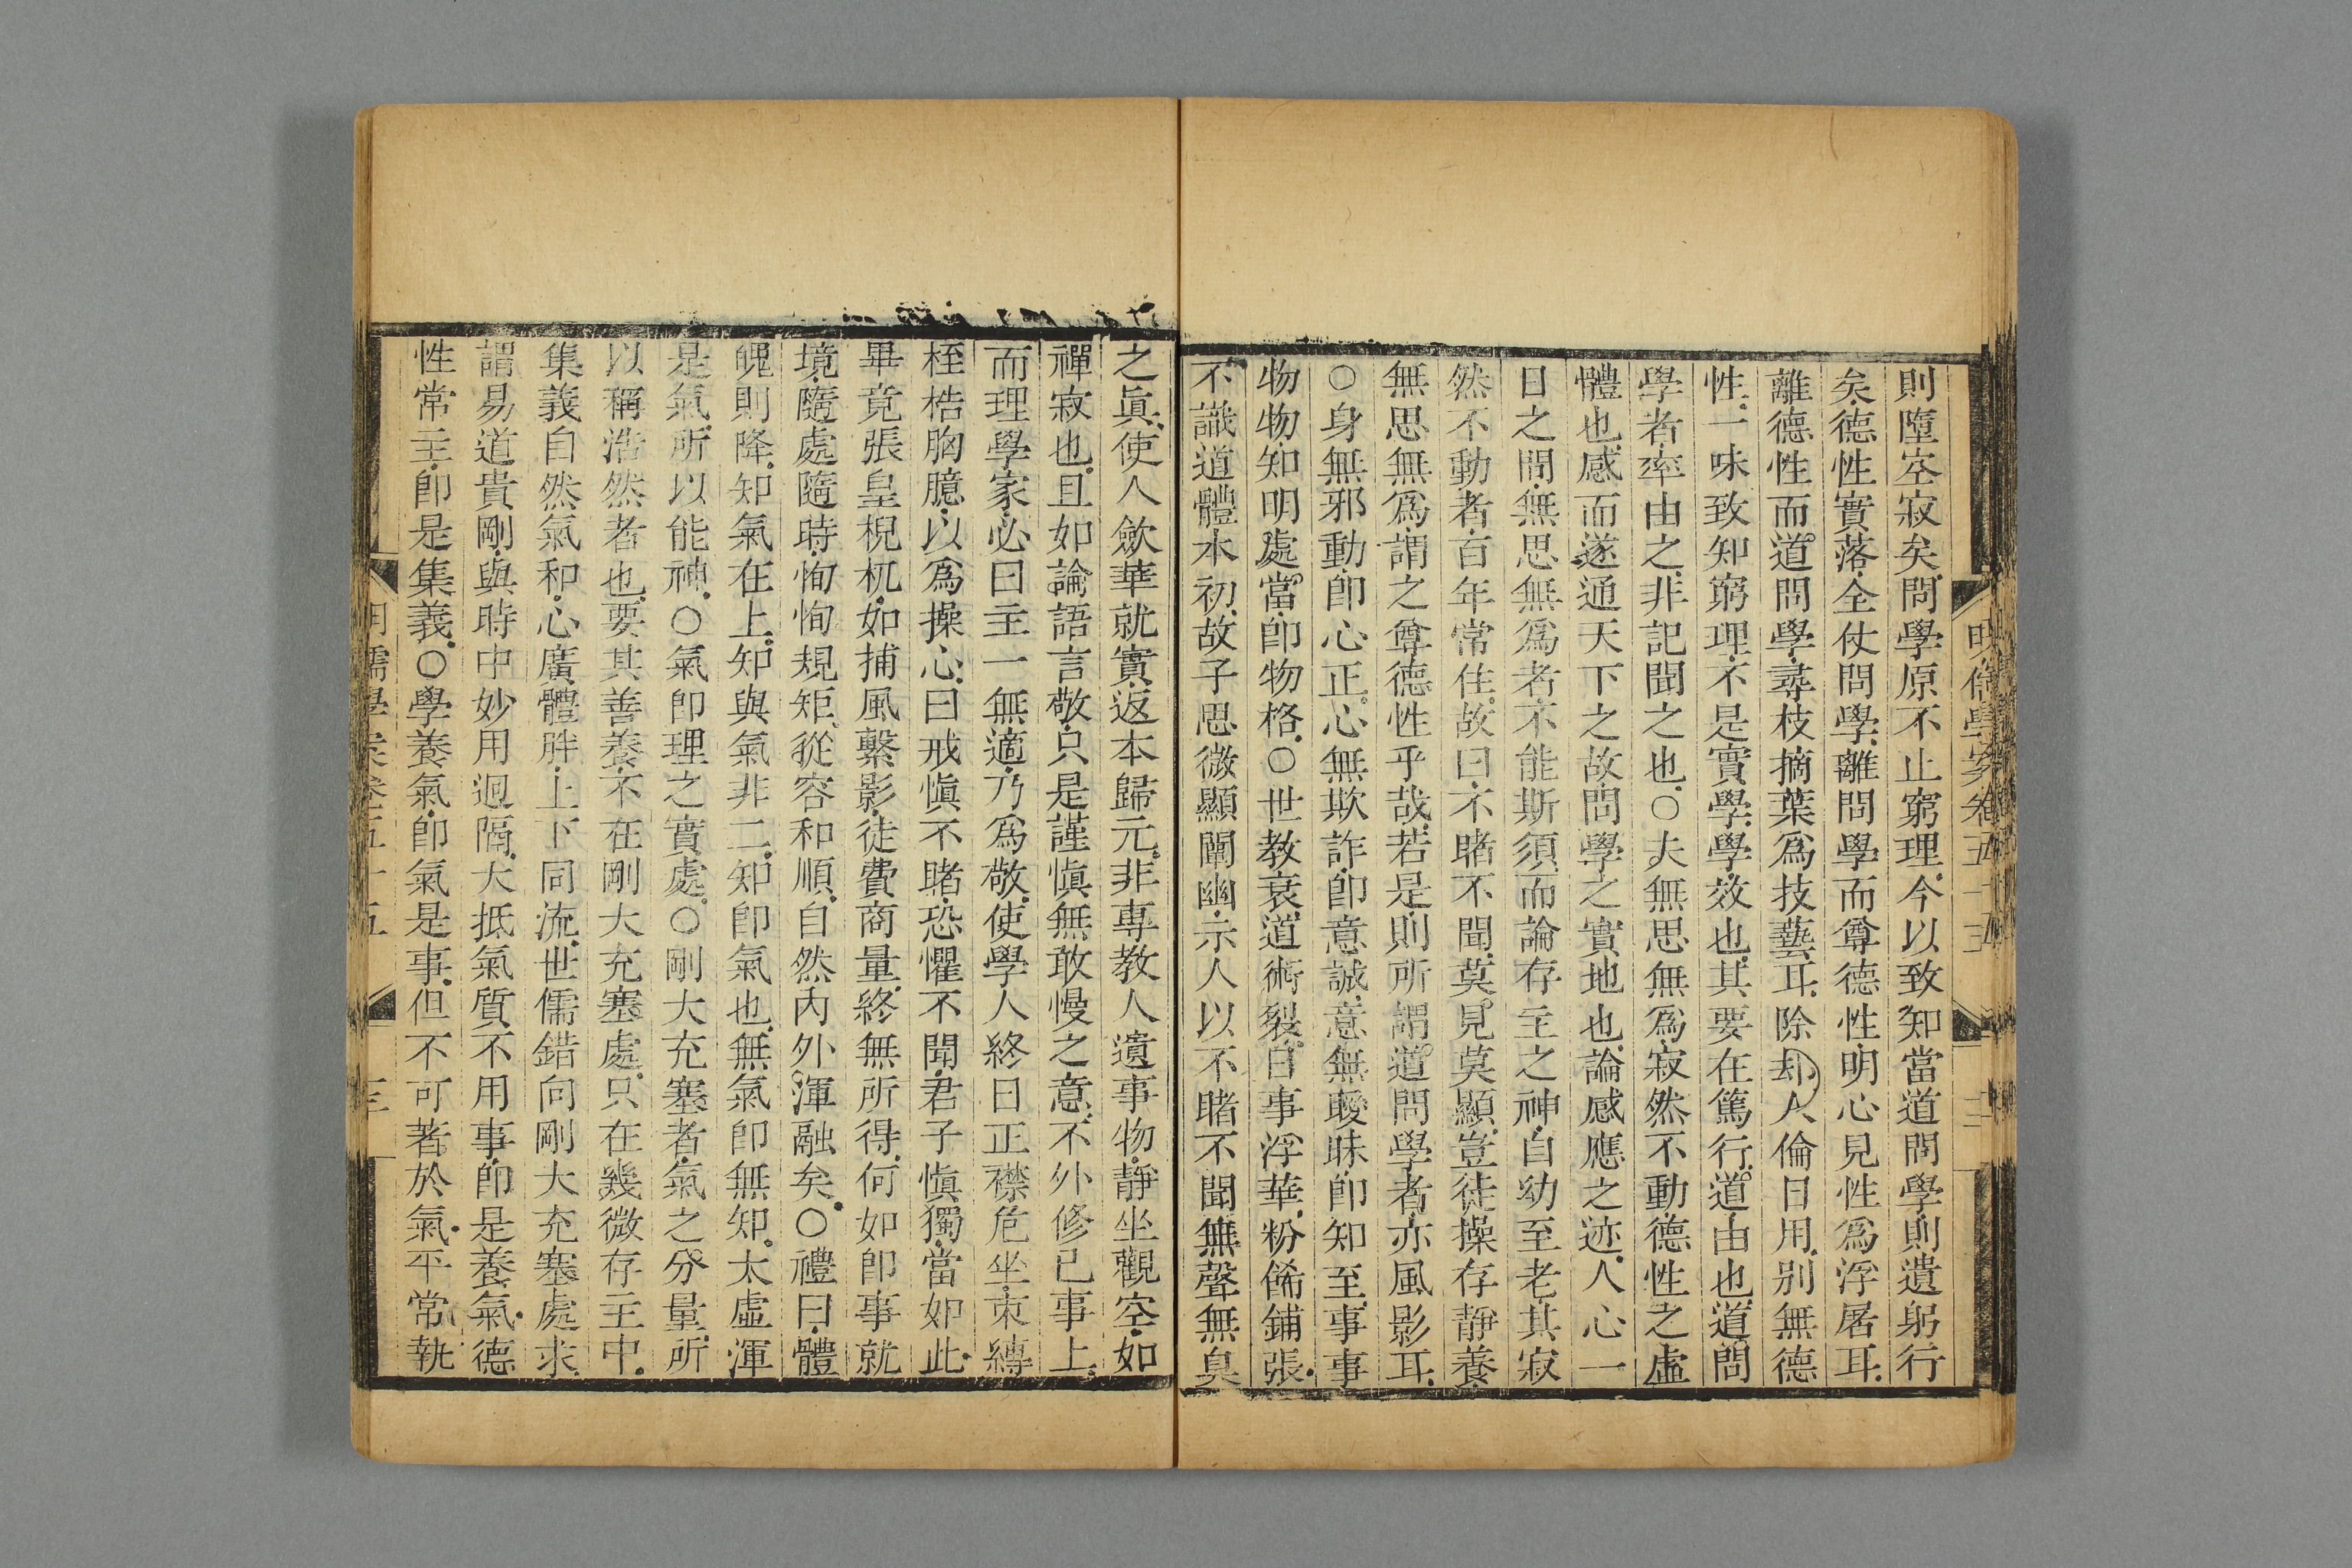 則墮空寂矣問學原不止窮理今以致知當道問學則遺躬行
矣德性實落全仗問學離問學而尊德性明心見性爲浮屠耳
離德性而道問學尋枝摘葉爲技藝耳除却人倫日用別無德
性一味致知窮理不是實學學效也其要在篤行道由也道問
學者率由之非記聞之也○夫無思無爲寂然不動德性之虛
體也感而遂通天下之故問學之實地也論感應之迹人心一
日之間無思無爲者不能斯須而論存主之神自幼至老其寂
然不動者百年常住故曰不睹不聞莫見莫顯豈徒操存靜養
無思無爲謂之尊德性乎哉若是則所謂道問學者亦風影耳
○身無邪動卽心正心無欺詐卽意誠意無曖昧卽知至事事
物物知明處當卽物格○世教衰道術裂日事浮華粉餙鋪張
不識道體本初故子思微顯闡幽示人以不睹不聞無聲無臭
之眞使人歛華就實返本歸元非專教人遺事物靜坐觀空如
禪寂也且如論語言敬只是謹愼無敢慢之意不外修已事上
而理學家必曰主一無適乃爲敬使學人終日正襟危坐束縳
桎梏胸臆以爲操心曰戒愼不睹恐懼不聞君子愼獨當如此
畢竟張皇棿杌如捕風繫影徒費商量終無所得何如卽事就
境隨處隨時恂恂規矩從容和順自然內外渾融矣○禮曰體
魄則降知氣在上知與氣非二知卽氣也無氣卽無知太虛渾
是氣所以能神○氣卽理之實處○剛大充塞者氣之分量所
以稱浩然者也要其善養不在剛大充塞處只在幾微存主中
集義自然氣和心廣體胖上下同流世儒錯向剛大充塞處求
謂易道貴剛與時中妙用迥隔大抵氣質不用事卽是養氣德
性常主卽是集義○學養氣卽氣是事但不可著於氣平常執
明儒學案卷五十五
三
明儒學案卷五十五
三